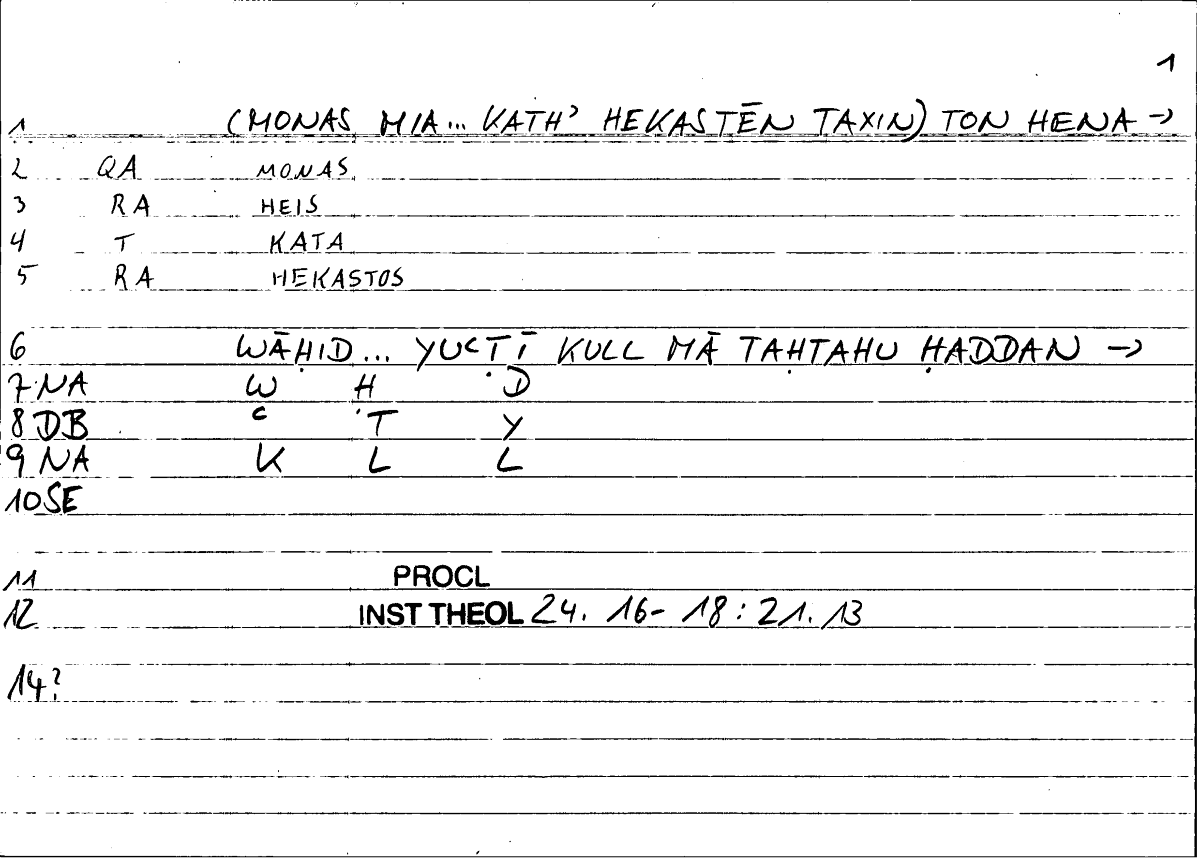 1
1 (MONAS MIA... KATH' HEKASTĒN TAXIN) TON HENA →
2 QA MONAS
3 RA HEIS
4 T KATA
5 RA HEKASTOS
6 WĀḤID... YUʿṬĪ KULL MĀ TAḤTAHU ḤADDAN →
7 NA W Ḥ D
8 DB ʿ Ṭ Y
9 NA K L L
10 SE
11 PROCL
12 INST THEOL 24. 16-18: 21. 13
14?